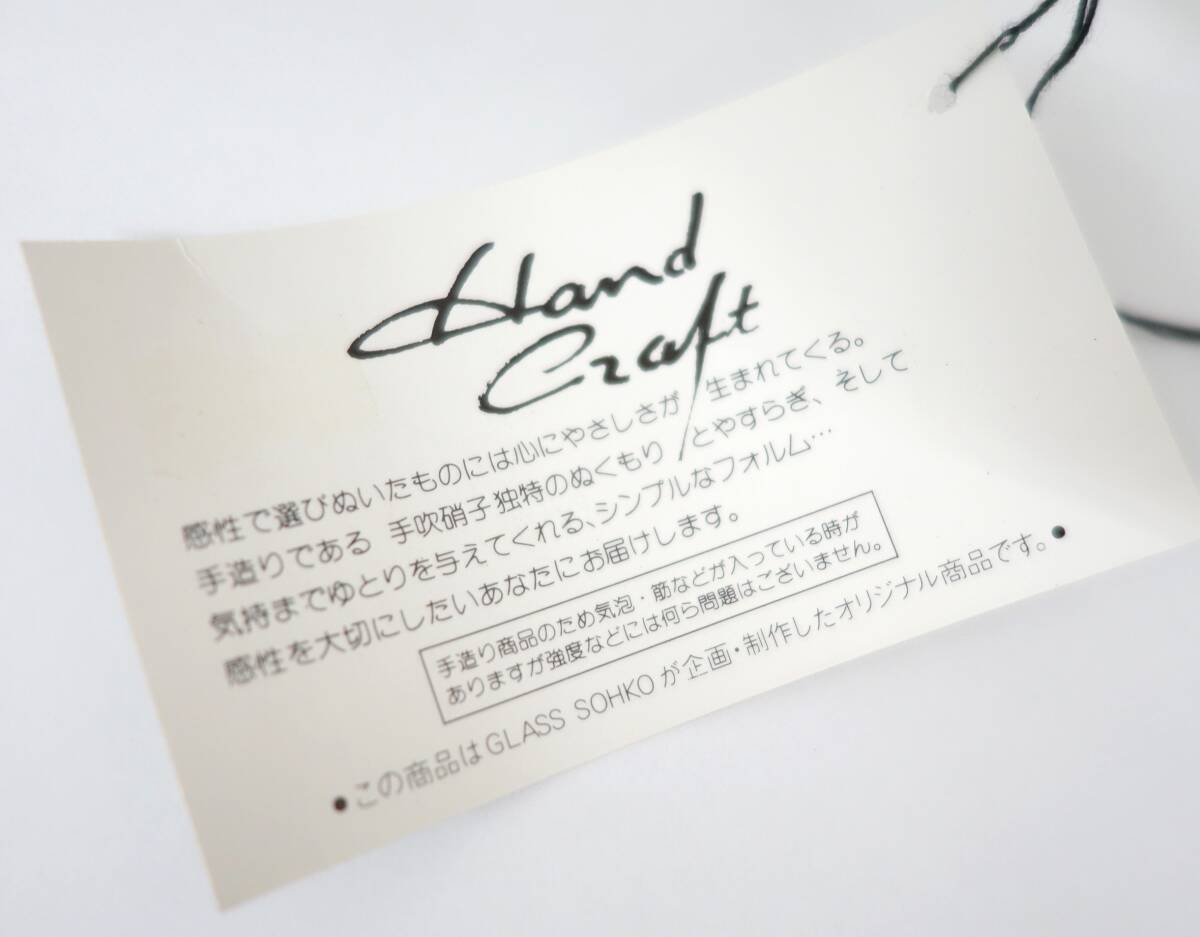 Hand
Craft
感性で選びぬいたものには心にやさしさが 生まれてくる。
手造りである 手吹硝子独特のぬくもり とやすらぎ、そして
気持までゆとりを与えてくれる、シンプルなフォルム…
感性を大切にしたいあなたにお届けします。
手造り商品のため気泡・筋などが入っている時が
ありますが強度などには何ら問題はございません。
●この商品はGLASS SOHKOが企画・制作したオリジナル商品です。●